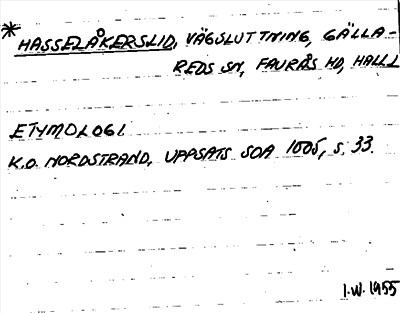 * HASSELÅKERSLID, VÄGSLUTTNING, GÄLLA-
REDS SN, FAURÅS HD, HALL
ETYMOLOGI
K.O. NORDSTRAND, UPPSATS SOA 1005, S. 33.
I.W. 1955